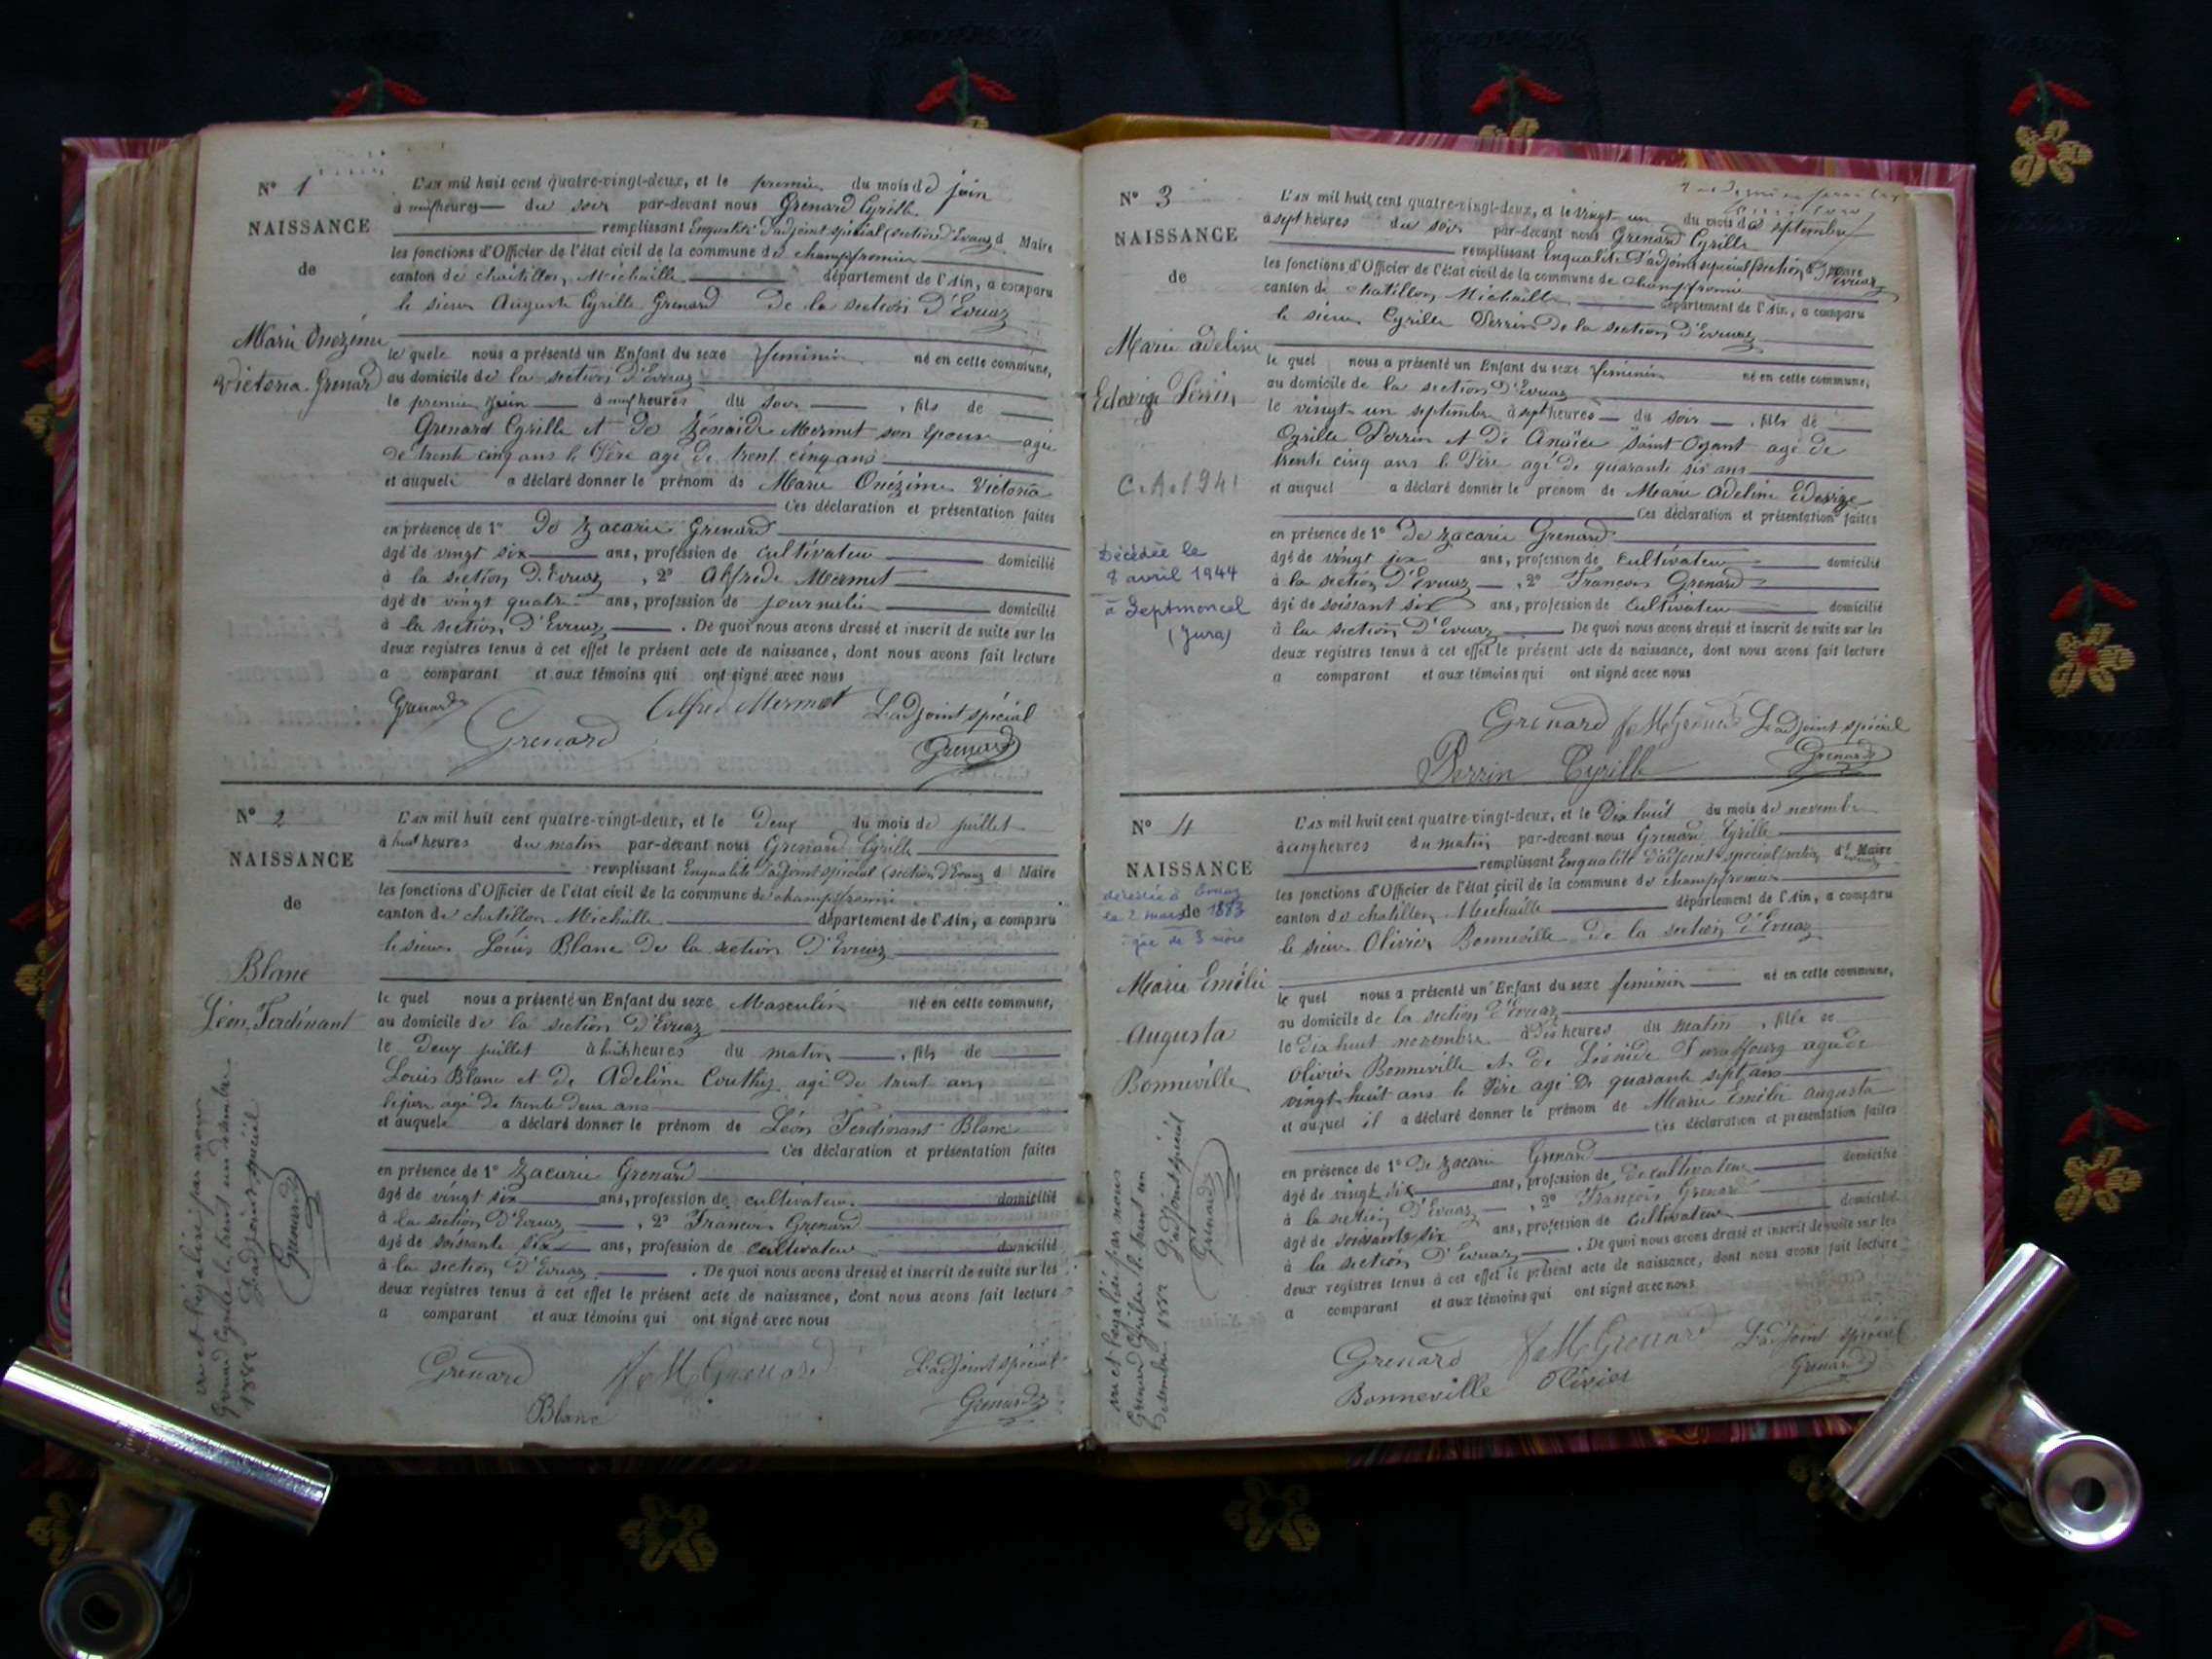 N° 1
NAISSANCE
de
Marie Onézime
Victoria Grenard
L'AN mil huit cent quatre-vingt-deux, et le premier du mois de juin
à neuf heures du soir par-devant nous Grenard Cyrille
remplissant Enqualité d'adjoint spécial (section d'Evuaz d Maire
les fonctions d'Officier de l'état civil de la commune de champfromier
canton de chatillon Michaille département de l'Ain, a comparu
le sieur Auguste Cyrille Grenard De la section D'Evuaz
le quele nous a présenté un Enfant du sexe feminin né en cette commune,
au domicile de la section d'Evuaz
le premier Juin à neuf heures du soir, fils de
Grenard Cyrille et de Zénaïde Mermet son Epouse agée
de trente cinq ans le Père agé de trent cinq ans
et auquele a déclaré donner le prénom de Marie Onézime Victoria
Ces déclaration et présentation faites
en présence de 1° De Zacarie Grenard
âgé de vingt six ans, profession de cultivateur domicilié
à la section D'Evuaz, 2° Alfrede Mermet
âgé de vingt quatre ans, profession de journalié domicilié
à la section D'Evuaz. De quoi nous avons dressé et inscrit de suite sur les
deux registres tenus à cet effet le présent acte de naissance, dont nous avons fait lecture
a comparant et aux témoins qui ont signé avec nous
Grenard Alfred Mermet L'adjoint spécial
Grenard Grenard
N° 2
NAISSANCE
de
Blanc
Léon Ferdinant
vu et légalisé par nous
Grenard Cyrille le trent un désembre
1882 L'adjoint spécial
Grenard
L'AN mil huit cent quatre-vingt-deux, et le Deux du mois de juillet
à huit heures du matin par-devant nous Grenard Cyrille
remplissant Enqualité d'adjoint spécial (section d'Evuaz d Maire
les fonctions d'Officier de l'état civil de la commune de champfromier
canton de chatillon Michaille département de l'Ain, a comparu
le sieur Louis Blanc de la section D'Evuaz
le quel nous a présenté un Enfant du sexe Masculin né en cette commune,
au domicile de la section D'Evuaz
le Deux juillet à huit heures du matin, fils de
Louis Blanc et de Adeline Couthy agé de trent ans
le père agé de trente deux ans
et auquele a déclaré donner le prénom de Léon Ferdinant Blanc
Ces déclaration et présentation faites
en présence de 1° Zacarie Grenard
âgé de vingt six ans, profession de cultivateur domicilié
à la section D'Evuaz, 2° François Grenard
âgé de soissante six ans, profession de cultivateur domicilié
à la section D'Evuaz. De quoi nous avons dressé et inscrit de suite sur les
deux registres tenus à cet effet le présent acte de naissance, dont nous avons fait lecture
a comparant et aux témoins qui ont signé avec nous
Grenard Grenard L'adjoint spécial
Blanc Grenard
N° 3
NAISSANCE
de
Marie adeline
Edwige Perrin
C.A. 1941
Décédée le
8 avril 1944
à Septmoncel
(Jura)
L'AN mil huit cent quatre-vingt-deux, et le vingt un du mois de septembre
à sept heures du soir par-devant nous Grenard Cyrille
remplissant Enqualité d'adjoint spécial (section d'Evuaz Maire
les fonctions d'Officier de l'état civil de la commune de champfromier
canton de chatillon Michaille département de l'Ain, a comparu
le sieur Cyrille Perrin de la section D'Evuaz
le quel nous a présenté un Enfant du sexe feminin né en cette commune,
au domicile de la section D'Evuaz
le vingt un septembre à sept heures du soir, fils de
Cyrille Perrin et de Anaïce Saint Oyant agé de
trente cinq ans le Père agé de quarante six ans
et auquel a déclaré donner le prénom de Marie Adeline Edwige
Ces déclaration et présentation faites
en présence de 1° De Zacarie Grenard
âgé de vingt six ans, profession de cultivateur domicilié
à la section D'Evuaz, 2° François Grenard
âgé de soissant six ans, profession de cultivateur domicilié
à la section D'Evuaz De quoi nous avons dressé et inscrit de suite sur les
deux registres tenus à cet effet le présent acte de naissance, dont nous avons fait lecture
a comparant et aux témoins qui ont signé avec nous
Grenard L'adjoint spécial
Perrin Cyrille Grenard
N° 4
NAISSANCE
décédée à Evuaz
le 2 mars 1883
de
âgée de 3 mois
Marie Emélie
Augusta
Bonneville
vu et légalisé par nous
Grenard Cyrille le trent un
Désembre 1882 L'adjoint spécial
Grenard
L'AN mil huit cent quatre-vingt-deux, et le Dix huit du mois de novembre
à cinq heures du matin par-devant nous Grenard Cyrille
remplissant Enqualité d'adjoint spécial (section d'Evuaz Maire
les fonctions d'Officier de l'état civil de la commune de champfromier
canton de chatillon Michaille département de l'Ain, a comparu
le sieur Olivier Bonneville De la section D'Evuaz
le quel nous a présenté un Enfant du sexe feminin né en cette commune,
au domicile de la section D'Evuaz
le dix huit novembre à Dis heures du matin, fille de
Olivier Bonneville et de Léonide Duraffourg agée de
vingt huit ans le Père agé de quarante sept ans
et auquel il a déclaré donner le prénom de Marie Emélie augusta
Ces déclaration et présentation faites
en présence de 1° De Zacarie Grenard
âgé de vingt six ans, profession de cultivateur domicilié
à la section D'Evuaz, 2° François Grenard
âgé de soissante six ans, profession de cultivateur domicilié
à la section D'Evuaz. De quoi nous avons dressé et inscrit de suite sur les
deux registres tenus à cet effet le présent acte de naissance, dont nous avons fait lecture
a comparant et aux témoins qui ont signé avec nous
Grenard Grenard L'adjoint spécial
Bonneville Olivier Grenard